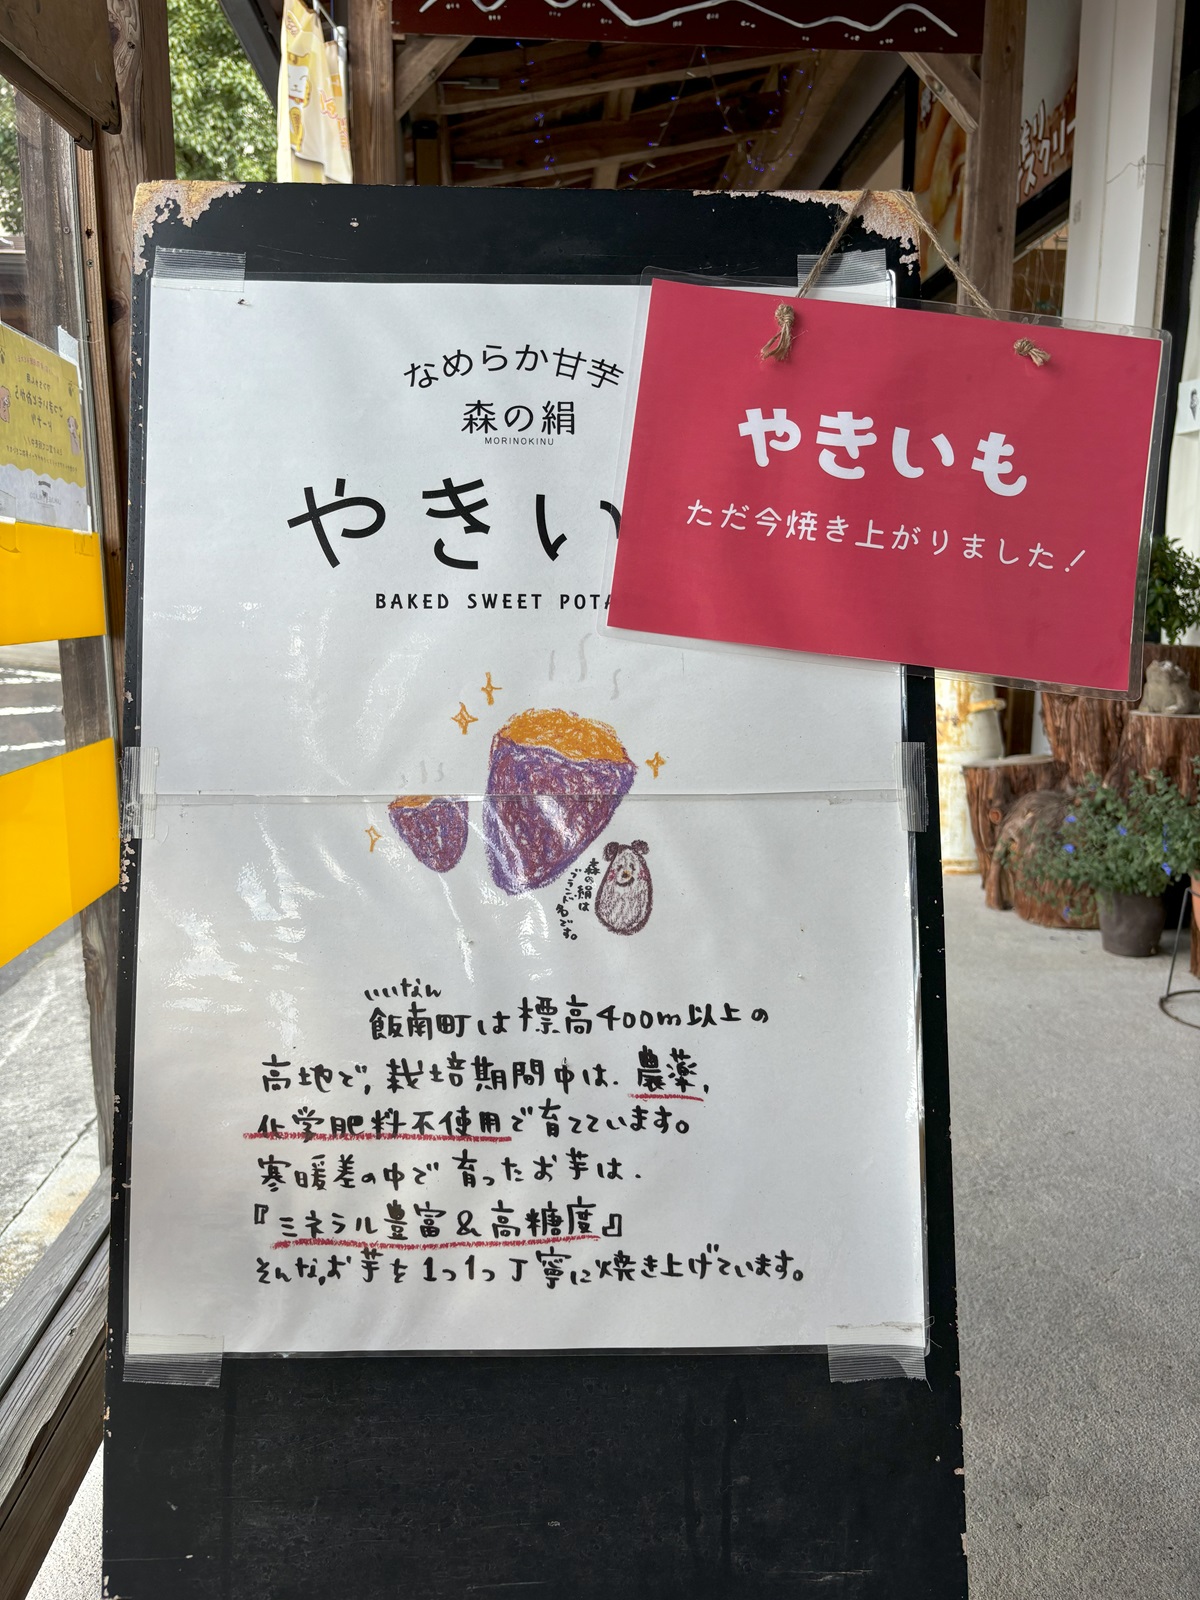 なめらか甘芋
森の絹
MORINOKINU
やきい
BAKED SWEET POTA
やきいも
ただ今焼き上がりました!
森の絹は
ブランド名です。
いいなん
飯南町は標高400m以上の
高地で、栽培期間中は、農薬、
化学肥料不使用で育てています。
寒暖差の中で育ったお芋は、
『ミネラル豊富&高糖度』
そんな、お芋を1つ1つ丁寧に焼き上げています。